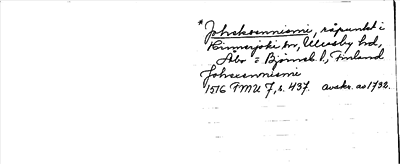 * Johskoenniemi, råpunkt i
Kinnerjoki by, Ulvsby hd,
Åbo - Björneb. l, Finland
Johscanniemi
1516 FMU 7, s. 437. avskr. ao 1732.